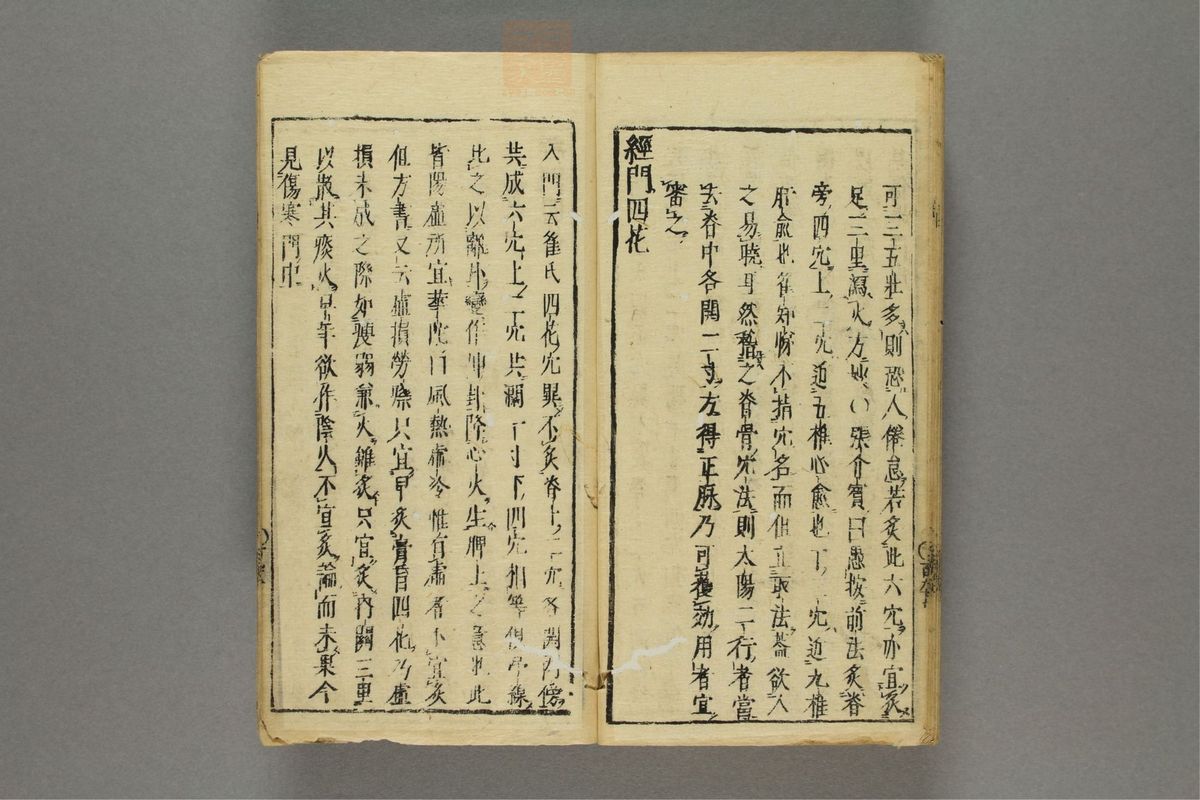 可三五壯多則恐人倦怠若灸此六穴亦宜灸
足三里瀉火方妙〇張介賓曰愚按前法灸脊
旁四穴上二穴近五椎心俞也下二穴近九椎
肝俞也崔知悌不指穴名而但立取法蓋欲人
之易曉耳然稽之脊骨穴法則太陽二行者當
去脊中各開二寸方得正脉乃可獲効用者宜
審之
經門四花
入門云崔氏四花穴異不灸脊上二穴各開兩傍
共成六穴上二穴共濶一寸下四穴相等俱吊線
比之以離卦變作坤卦降心火生脾土之意也此
皆陽虛所宜華佗曰風熱虛冷惟有肅者不宜灸
但方書又云虛損勞瘵只宜早灸膏肓四花乃虛
損未成之際如瘦弱兼火雖灸只宜灸內關三里
以散其痰火早年欲作陰火不宜灸論而未果今
見傷寒門中